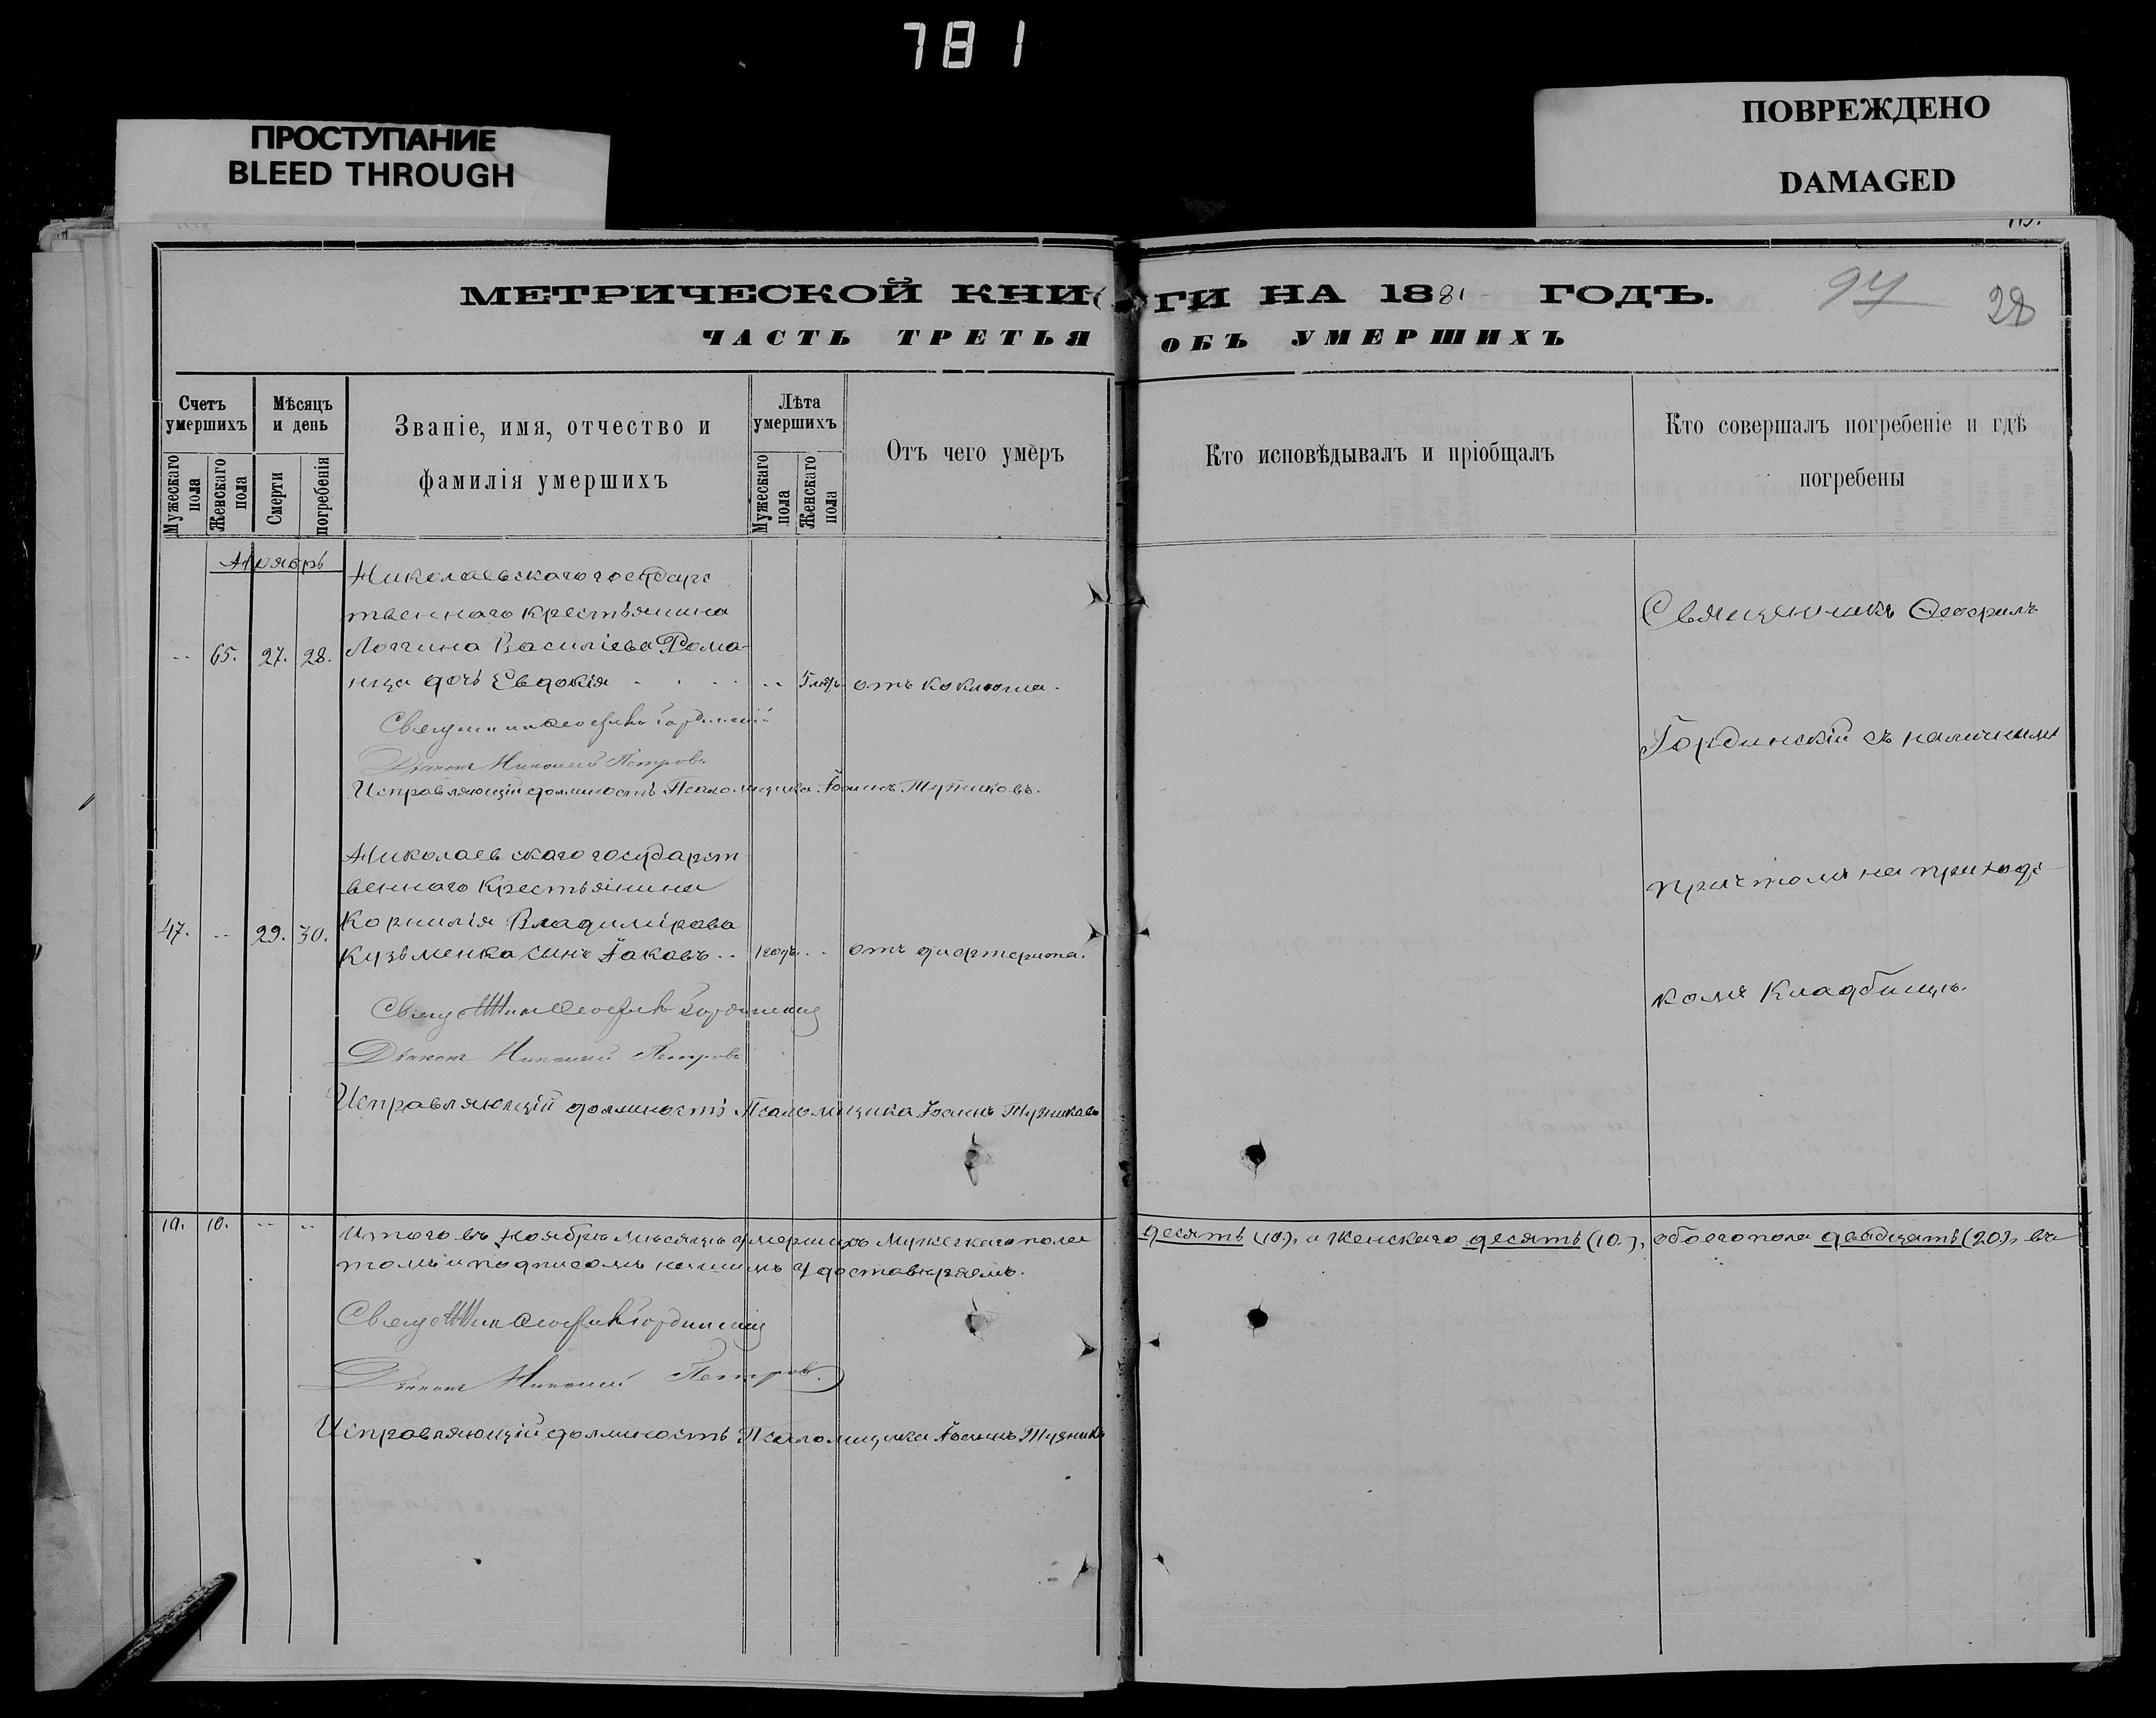 781
ПРОСТУПАНИЕ
BLEED THROUGH
ПОВРЕЖДЕНО
DAMAGED
МЕТРИЧЕСКОЙ КНИГИ НА 1881 ГОДЪ.
97
28
ЧАСТЬ ТРЕТЬЯ ОБЪ УМЕРШИХЪ
Счетъ умершихъ
Мужескаго пола
Женскаго пола
Мѣсяцъ и день
Смерти
погребенія
Званіе, имя, отчество и
фамилія умершихъ
Лѣта умершихъ
Мужескаго пола
Женскаго пола
Отъ чего умеръ
Кто исповѣдывалъ и пріобщалъ
Кто совершалъ погребеніе и гдѣ
погребены
Ноябрь
Николаевскаго государс
твеннаго крестьянина
65. 27. 28. Логгина Василіева Рома-
нца дочь Евдокія от коклюша.
Священникъ Ѳеофилъ Гординскій
Діаконъ Николай Петровъ
Исправляющій должность Псаломщика Іоаннъ Тузниковъ.
Николаевскаго государст
веннаго Крестьянина
47. 29. 30. Корнилія Владимірова
Кузьменка сынъ Іаковъ 1 годъ. отъ дифтерита.
Священникъ Ѳеофилъ Гординскій
Діаконъ Николай Петровъ
Исправляющій должность Псаломщика Іоаннъ Тузниковъ
Священникъ Ѳеофилъ
Гординскій съ наличнымъ
причтомъ на приходс
комъ Кладбищѣ.
10. 10. Итого въ Ноябрѣ мѣсяцѣ умершихъ Мужескаго пола десять (10), а Женскаго десять (10), обоего пола двадцать (20), въ
томъ и подписомъ нашимъ удостовѣряемъ.
Священникъ Ѳеофилъ Гординскій
Діаконъ Николай Петровъ.
Исправляющій должность Псаломщика Іоаннъ Тузниковъ